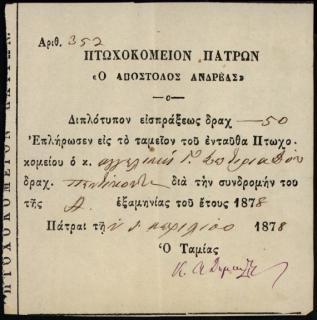 Ἀριθ. 352
ΠΤΩΧΟΚΟΜΕΙΟΝ ΠΑΤΡΩΝ
«Ὁ ΑΠΟΣΤΟΛΟΣ ΑΝΔΡΕΑΣ»
Διπλότυπον εἰσπράξεως δραχ —50
Ἐπλήρωσεν εἰς τὸ ταμεῖον τοῦ ἐνταῦθα Πτωχο
κομείου ὁ κ.
δραχ. πεντήκοντα διὰ τὴν συνδρομήν του
τῆς Α. ἑξαμηνίας τοῦ ἔτους 1878
Πάτραι τῇ ἀπριλίου 1878
Ὁ Ταμίας
ΠΤΩΧΟΚΟΜΕΙΟΝ ΠΑΤΡΩΝ